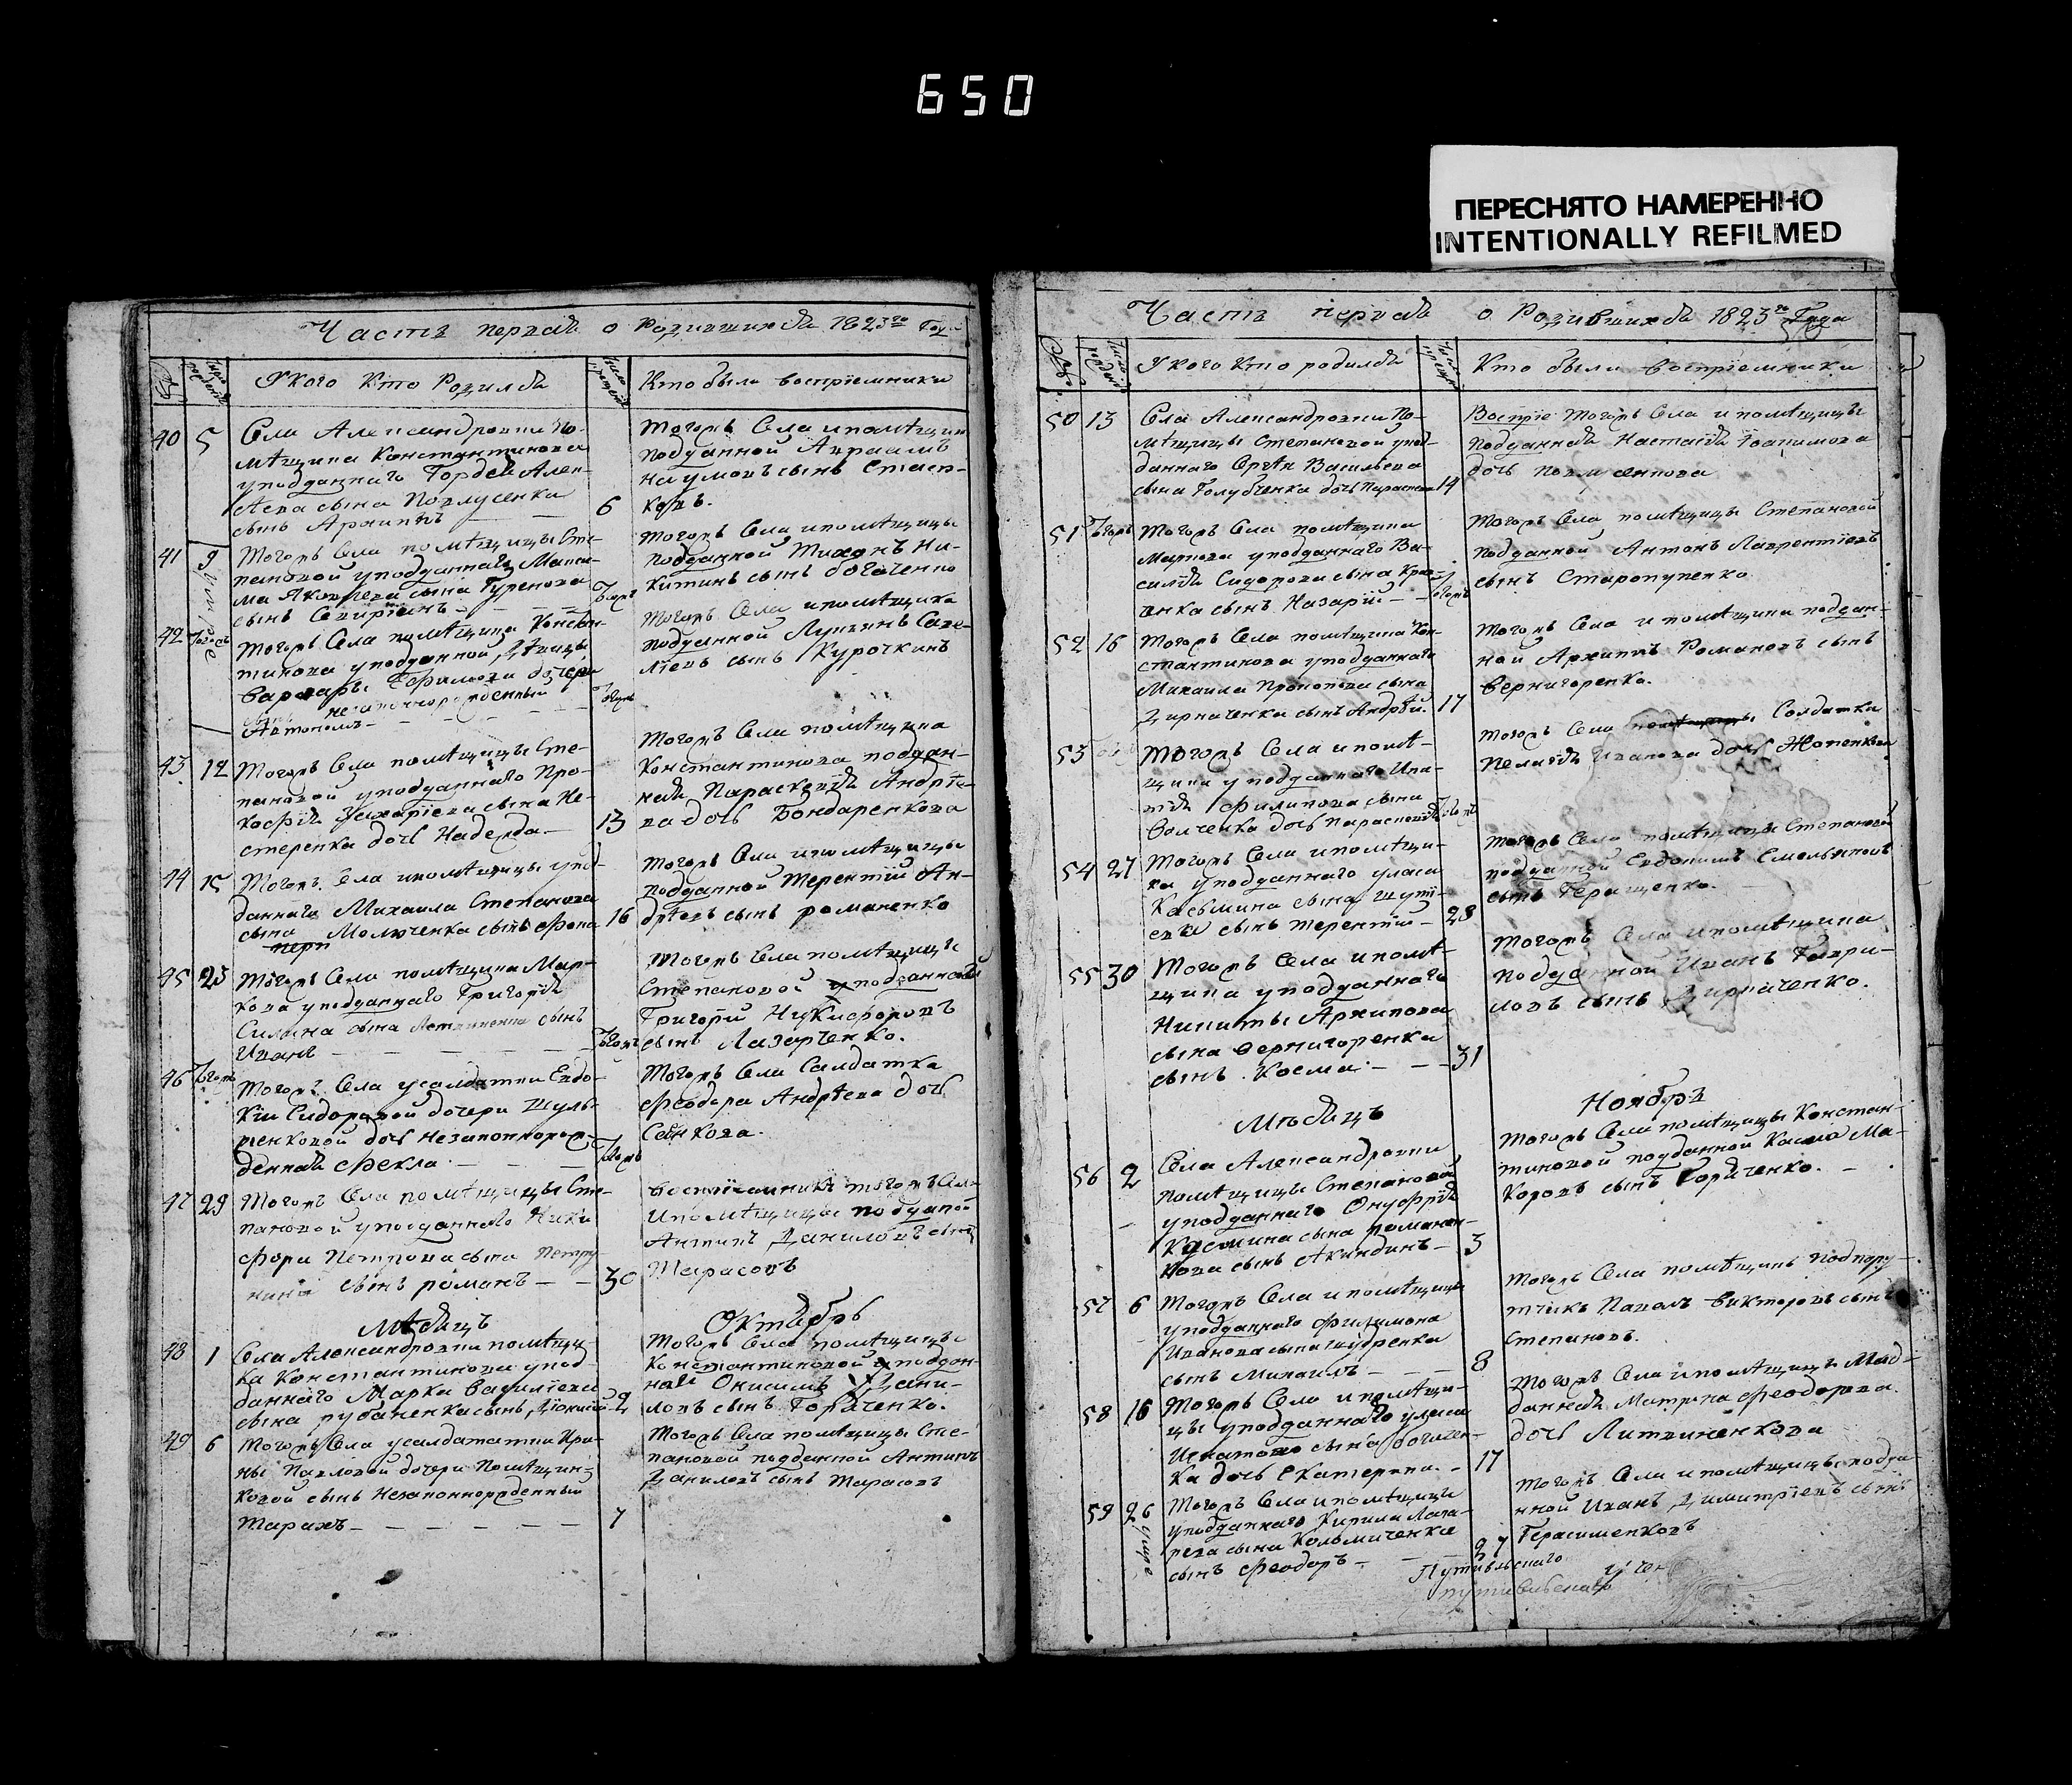 650
ПЕРЕСНЯТО НАМЕРЕННО
INTENTIONALLY REFILMED
Часть первая о Родившихся 1823го Года
У кого Кто Родился
Кто были восприемники
40 5
Села Александровки по-
мѣщика Константинова
у подданнаго Гордея Алек-
сѣева сына Павлусенка
сынъ Архиппъ
6
Тогожъ Села и помѣщика
подданной Авраамъ
Наумовъ сынъ
41 9
Тогожъ Села помѣщицы Сте-
пановой у подданнаго Макси-
ма Яковлева сына Гуренкова
сынъ
Тогожъ Села и помѣщицы
подданной Тихонъ Ни-
китинъ сынъ Богаченко
42
Тогожъ Села помѣщика Констан-
тинова у подданной Дѣвицы
Варвары Ефимовой дочери
сынъ незаконнорожденный
Автономъ
Тогожъ Села и помѣщика
подданной Лукьянъ Саве-
лїевъ сынъ Курочкинъ
43 12
Тогожъ Села помѣщицы Сте-
пановой у подданнаго Про-
кофїя Захарїева сына Не-
стеренка дочь Надежда
13
Тогожъ Села помѣщика
Константинова поддан-
ная Параскевїя Андрїе-
ва дочь Бондаренкова
44 15
Тогожъ Села и помѣщицы у под-
даннаго Михаила Степанова
сына Молюченка сынъ Фока
16
Тогожъ Села и помѣщицы
подданной Терентїй Ан-
дрѣевъ сынъ романенко
45 23
Тогожъ Села помѣщика Мар-
кова у подданнаго Григорїя
Силина сына Литвиненка сынъ
Иванъ
Тогожъ Села помѣщицы
Степановой у подданной
Григорїй Никифоровъ
сынъ Лазарченко.
46
Тогожъ Села у солдатки Евдо-
кїи Сидоровой дочери Шуль-
женковой дочь незаконнорож-
денная Фекла
Тогожъ Села Салдатка
Феодора Андрѣева дочь
Сенкова.
47 29
Тогожъ Села помѣщицы Сте-
пановой у подданнаго Ники
фора Петрова сына Петру-
сынъ романъ
30
Восприемникъ тогожъ Села
и помѣщицы подданой
Антипъ Даниловъ сынъ
Тарасовъ
Мѣсяцъ
Октябрь
48 1
Села Александровки помѣщи-
ка Константинова у под-
даннаго Марка Василїева
сына рубаненка сынъ
2
Тогожъ Села помѣщицы
Константиновой у поддан-
ной Онисимъ Дани-
ловъ сынъ Горяченко.
49 6
Тогожъ Села у салдатки Ири-
ны Павловой дочери Помѣщин-
ковой сынъ Незаконнорожденный
Тарахъ
7
Тогожъ Села помѣщицы Сте-
пановой подданной Антипъ
Даниловъ сынъ Тарасовъ
Часть первая о Родившихся 1823го Года
У кого Кто родился
Кто были восприемники
50 13
Села Александровки По-
мѣщицы Степановой у под-
даннаго Сергѣя Васильева
сына Голубченка дочь
14
Воспрїе тогожъ Села и помѣщицы
подданная Настасїя Іоакимова
дочь
51
Тогожъ Села помѣщика
Маркова у подданнаго Ва-
силїя Сидорова сына
сынъ Назарїй
Тогожъ Села помѣщицы Степановой
подданной Антонъ Лаврентїевъ
сынъ Старопупенко
52 16
Тогожъ Села помѣщика Кон-
стантинова у подданнаго
Михаила Прокопова сына
Дираченка сынъ Андрѣй.
17
Тогожъ Села и помѣщика поддан-
ной Архиппъ Романовъ сынъ
Вернигоренко.
53
Тогожъ Села и помѣ-
щика у подданнаго Ипа-
тїя Филипова сына
Волченка дочь Параскевїя
Тогожъ Села Солдатка
Пелагїя Иванова дочь
54 27
Тогожъ Села и помѣщи-
ка у подданнаго уласа
Касьмина сына
сынъ терентїй
28
Тогожъ Села помѣщицы Степановой
подданной Евдокимъ Емельяновъ
сынъ Геращенко.
55 30
Тогожъ Села и помѣ-
щика у подданнаго
Никиты Архипова
сына Вернигоренка
сынъ Косма
31
Тогожъ Села и помѣщика
подданной Иванъ Гаври-
ловъ сынъ Дираченко.
Мѣсяцъ
Ноябрь
56 2
Села Александровки
помѣщицы Степановой
у подданнаго Онуфрїя
Касмина сына романен-
кова сынъ Акиндинъ
3
Тогожъ Села помѣщицы Констан-
тиновой подданной Касма Ма-
каровъ сынъ Горяченко.
57 6
Тогожъ Села и помѣщицы
у подданнаго Филимона
Иванова сына шудренка
сынъ Михаилъ
8
Тогожъ Села помѣщикъ Подпору-
тчикъ Павелъ Викторовъ сынъ
Степановъ.
58 16
Тогожъ Села и помѣщи-
цы у подданнаго уласа
Игнатова сына Богачен-
ка дочь Екатерина.
17
Тогожъ Села и помѣщицы под-
данная Матрона Феодорова
дочь Литвиненкова
59 26
Тогожъ Села и помѣщицы
у подданнаго Кирила Лаза-
рева сына Кольмиченка
сынъ Феодоръ
27
Тогожъ Села и помѣщицы подда-
нной Иванъ Димитрїевъ сынъ
Герасименковъ
Путивльскаго
путивльскаго